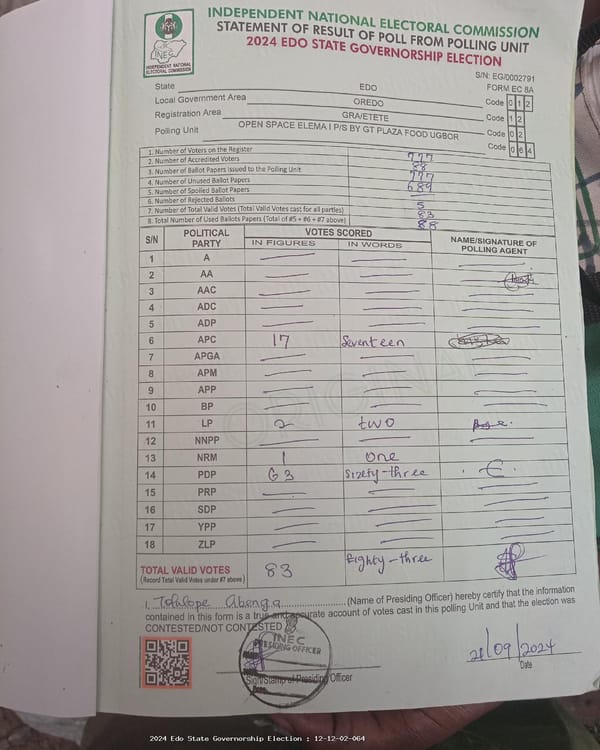 INDEPENDENT NATIONAL ELECTORAL COMMISSION
STATEMENT OF RESULT OF POLL FROM POLLING UNIT
2024 EDO STATE GOVERNORSHIP ELECTION
INEC
INDEPENDENT NATIONAL ELECTORAL COMMISSION
S/N: EG/0002791
FORM EC 8A
State EDO
Local Government Area OREDO Code 0 1 2
Registration Area GRA/ETETE Code 1 2
Polling Unit OPEN SPACE ELEMA I P/S BY GT PLAZA FOOD UGBOR Code 0 2
Code 0 6 4
1. Number of Voters on the Register 777
2. Number of Accredited Voters 88
3. Number of Ballot Papers Issued to the Polling Unit 777
4. Number of Unused Ballot Papers 689
5. Number of Spoiled Ballot Papers
6. Number of Rejected Ballots 5
7. Number of Total Valid Votes (Total Valid Votes cast for all parties) 83
8. Total Number of Used Ballots Papers (Total of #5 + #6 + #7 above) 88
S/N POLITICAL PARTY VOTES SCORED NAME/SIGNATURE OF POLLING AGENT
IN FIGURES IN WORDS
1 A
2 AA
3 AAC
4 ADC
5 ADP
6 APC 17 Seventeen
7 APGA
8 APM
9 APP
10 BP
11 LP 2 two
12 NNPP
13 NRM 1 one
14 PDP 63 Sixty-three
15 PRP
16 SDP
17 YPP
18 ZLP
ORIGINAL
TOTAL VALID VOTES 83 Eighty-three
(Record Total Valid Votes under #7 above)
I, (Name of Presiding Officer) hereby certify that the information
contained in this form is a true and accurate account of votes cast in this polling Unit and that the election was
CONTESTED/NOT CONTESTED
INEC
PRESIDING OFFICER
Sign/Stamp of Presiding Officer
21/09/2024
Date
2024 Edo State Governorship Election : 12-12-02-064